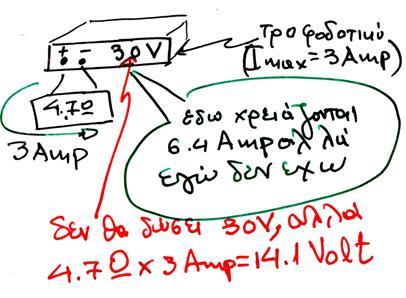 + - 30V
τροφοδοτικό
(Imax=3Amp)
4.7Ω
3 Amp
εδω χρειάζονται
6.4 Amp αλλά
εγώ δεν έχω
δεν θα δώσει 30V, αλλά
4.7Ω x 3 Amp=14.1 Volt